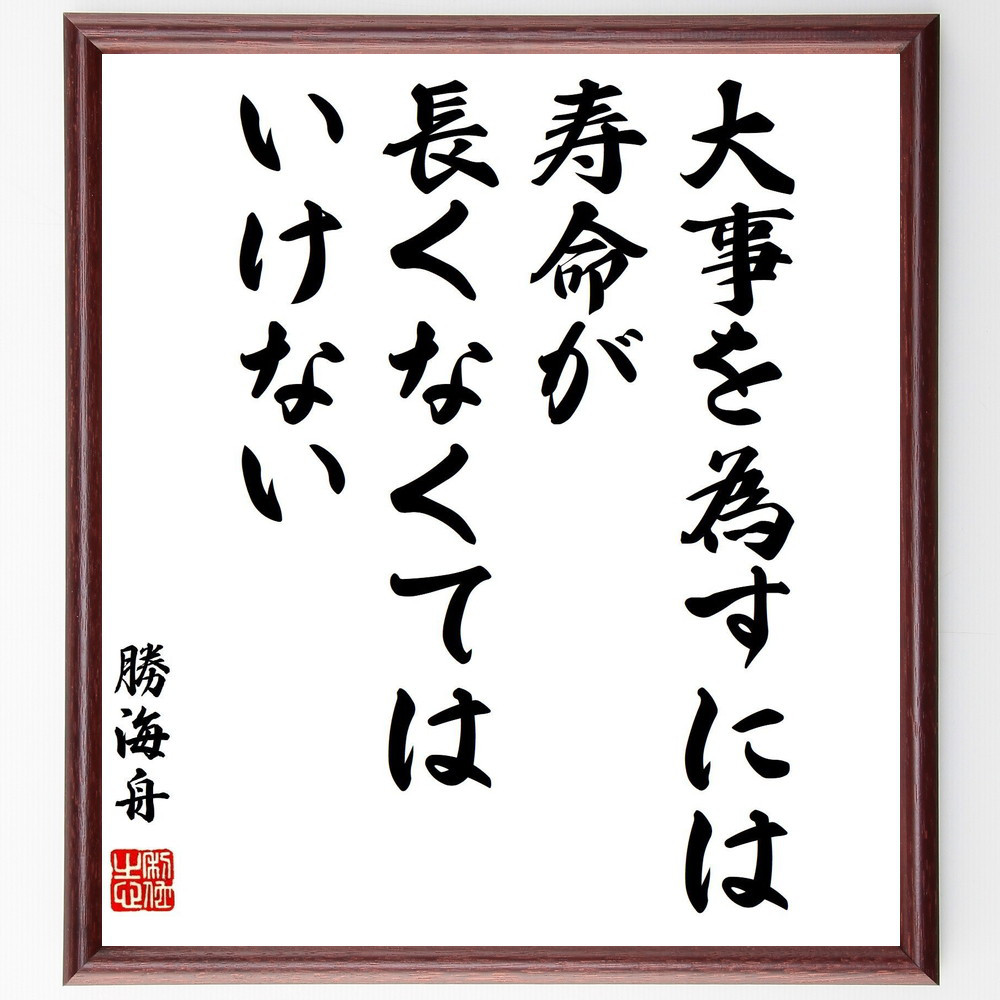 大事を為すには
寿命が
長くなくては
いけない
勝海舟